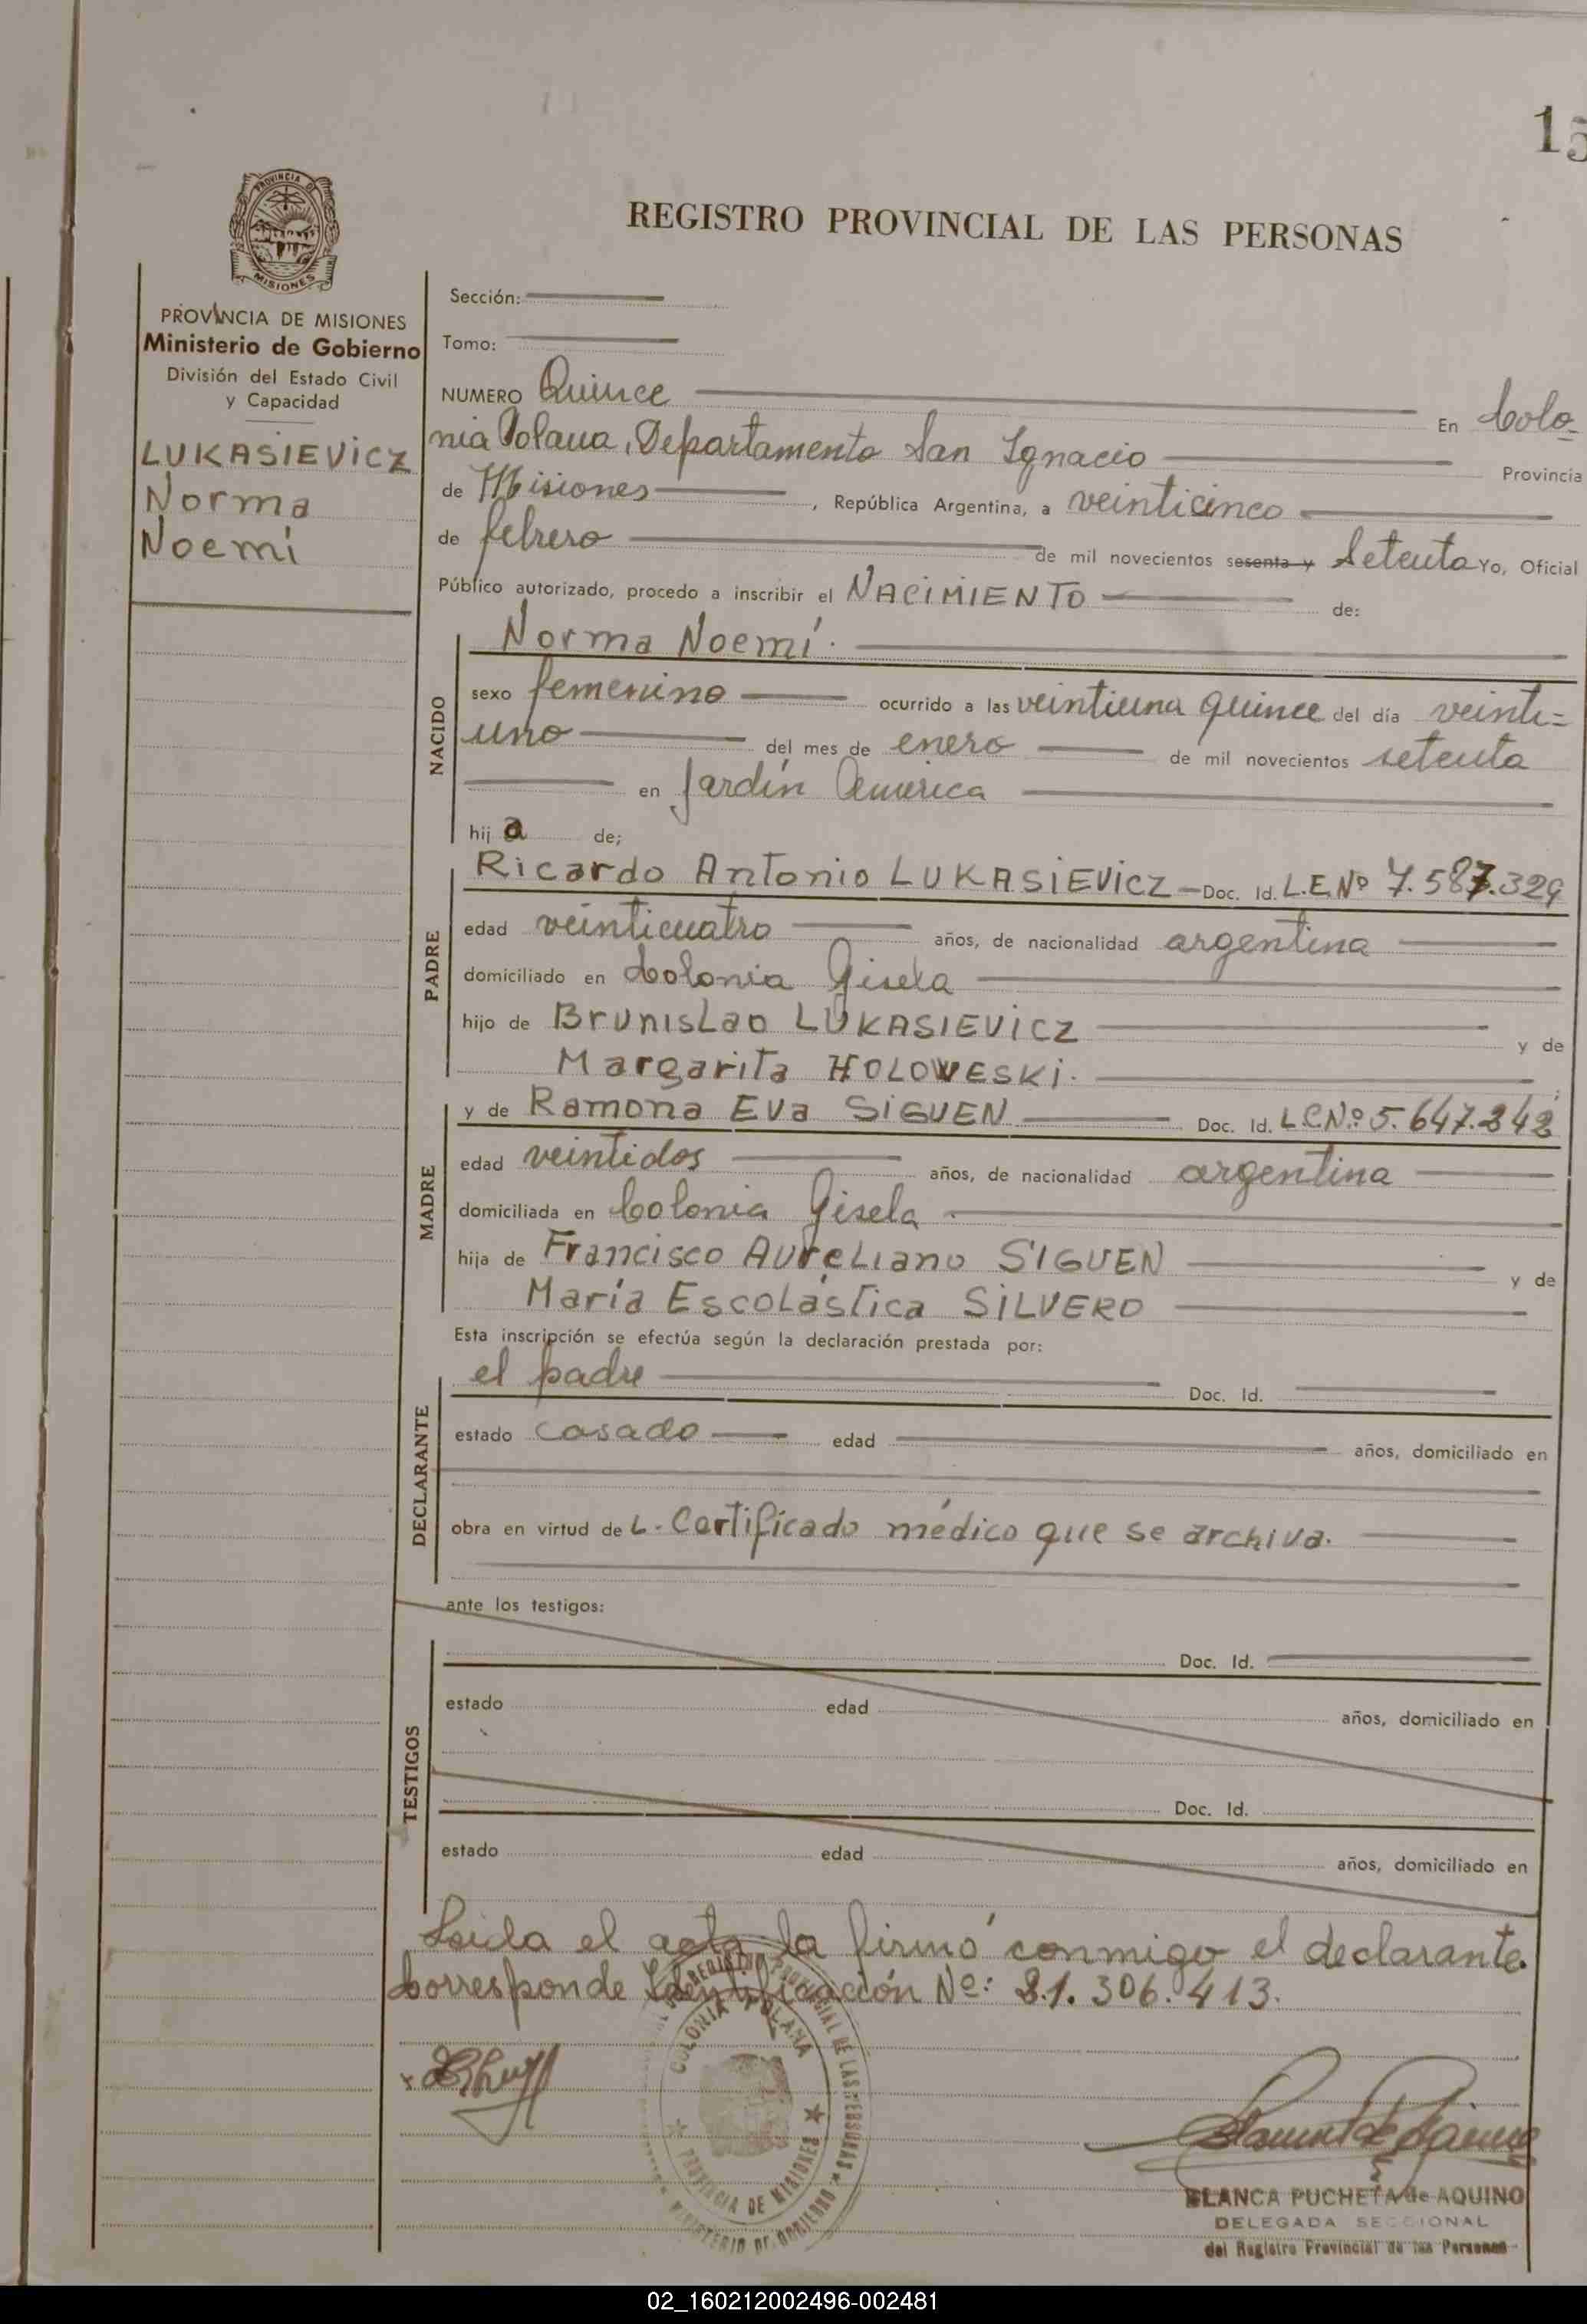 15
PROVINCIA DE
MISIONES
REGISTRO PROVINCIAL DE LAS PERSONAS
PROVINCIA DE MISIONES
Ministerio de Gobierno
División del Estado Civil
y Capacidad
LUKASIEVICZ
Norma
Noemí
Sección:
Tomo:
NUMERO Quince En Colo-
nia Polana, Departamento San Ignacio Provincia
de Misiones, República Argentina, a veinticinco
de febrero de mil novecientos sesenta y Setenta Yo, Oficial
Público autorizado, procedo a inscribir el NACIMIENTO de:
NACIDO
Norma Noemí.
sexo femenino ocurrido a las veintiuna quince del día veinti=
uno del mes de enero de mil novecientos setenta
en Jardín América
hij a de;
PADRE
Ricardo Antonio LUKASIEVICZ Doc. Id. L.E.Nº 7.587.329
edad veinticuatro años, de nacionalidad argentina
domiciliado en Colonia Gisela
hijo de BrunisLao LUKASIEVICZ y de
Margarita HOLOWESKI.
MADRE
y de Ramona Eva SIGUEN Doc. Id. L.C.Nº: 5.647.242
edad veintidos años, de nacionalidad argentina
domiciliada en Colonia Gisela
hija de Francisco AureLiano SIGUEN y de
María EscoLástica SILVERO
Esta inscripción se efectúa según la declaración prestada por:
DECLARANTE
el padre Doc. Id.
estado casado edad años, domiciliado en
obra en virtud de L. Certificado médico que se archiva.
ante los testigos:
TESTIGOS
Doc. Id.
estado edad años, domiciliado en
Doc. Id.
estado edad años, domiciliado en
Leida el acta la firmó conmigo el declarante.
Corresponde Identificación Nº: 21.306.413.
REGISTRO PROVINCIAL DE LAS PERSONAS
COLONIA POLANA
PROVINCIA DE MISIONES
MINISTERIO DE GOBIERNO
BLANCA PUCHETA de AQUINO
DELEGADA SECCIONAL
del Registro Provincial de las Personas
02_160212002496-002481